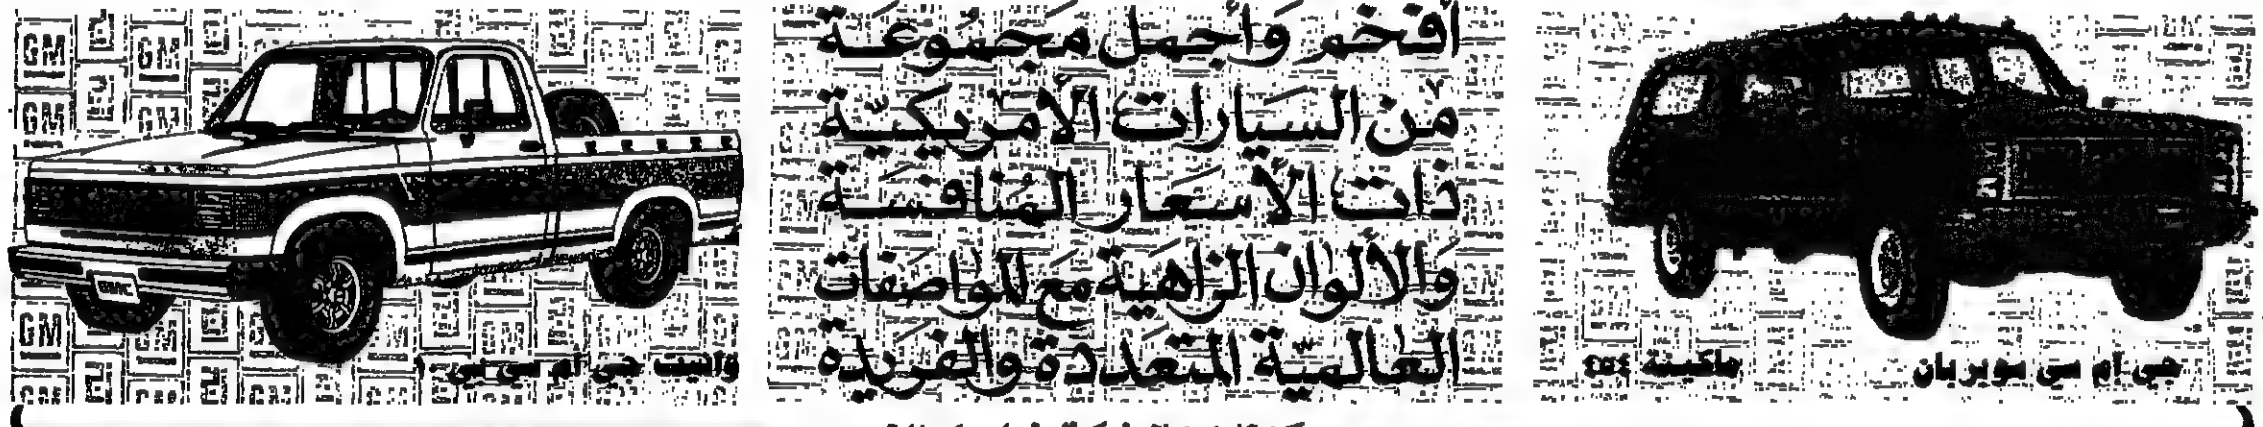 أفخم وَأجمل مَجمُوعَة
مِّن السيَارات الأمريكيّة
ذات الأسعَار المُنافسَة
وَالألوان الزاهيَة مَع المواصَفات
العَالميّة المتعَددة والفريده
جي ام سي سوبربان
ماكينة ٤٥٤
وانيت جي ام سي سي
GMC
GM